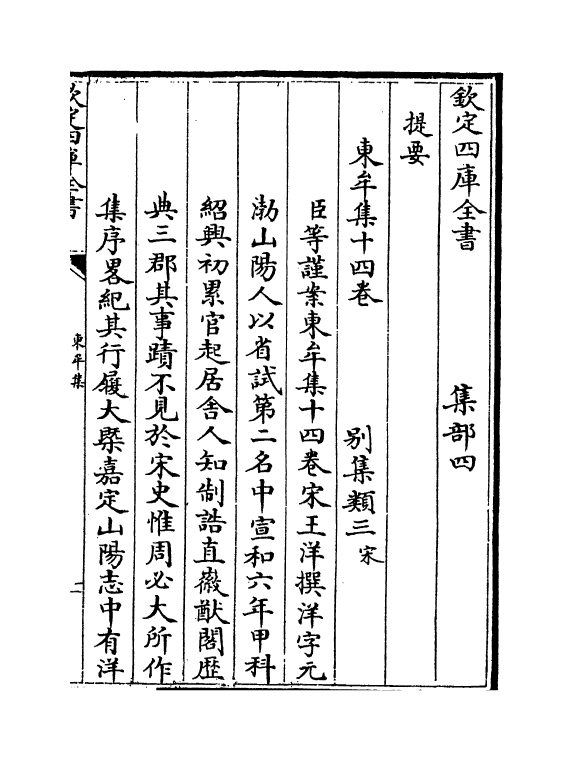 欽定四庫全書　集部四
提要
東牟集十四卷　别集類三宋
臣等謹案東牟集十四卷宋王洋撰洋字元
渤山陽人以省試第二名中宣和六年甲科
紹興初累官起居舍人知制誥直徽猷閣歷
典三郡其事蹟不見於宋史惟周必大所作
集序畧紀其行履大槩嘉定山陽志中有洋
欽定四庫全書
東牟集